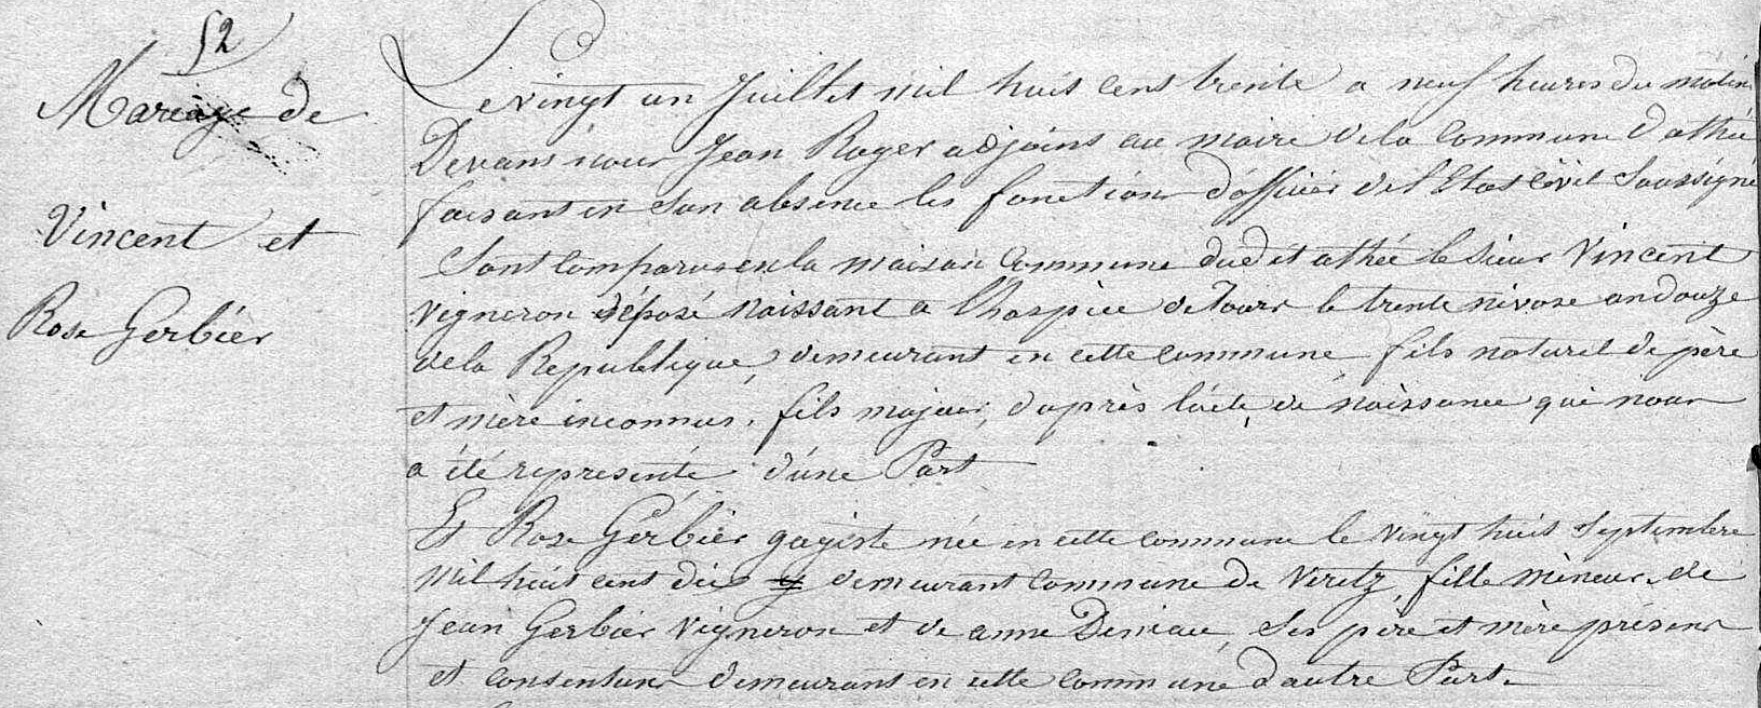 52
Mariage de
Vincent et
Rose Gerbier
Le vingt un Juillet mil huit cent trente a neuf heures du matin
Devant nous Jean Roger adjoint au maire de la Commune d'athée
faisant en son absence les fonctions d'officier de l'Etat civil Soussigné
Sont comparus en la maison Commune dudit athée le Sieur Vincent
vigneron déposé naissant a l'hospice de Tours le trente nivose an douze
de la Republique, demeurant en cette commune fils naturel de père
et mère inconnus, fils majeur, d'après l'acte de naissance qui nous
a été representé d'une Part
Et Rose Gerbier gagiste née en cette commune le vingt huit Septembre
mil huit cent dix demeurant commune de Veretz, fille mineure de
Jean Gerbier vigneron et de anne Deniau, ses père et mère présens
et consentans demeurant en cette commune d'autre Part.